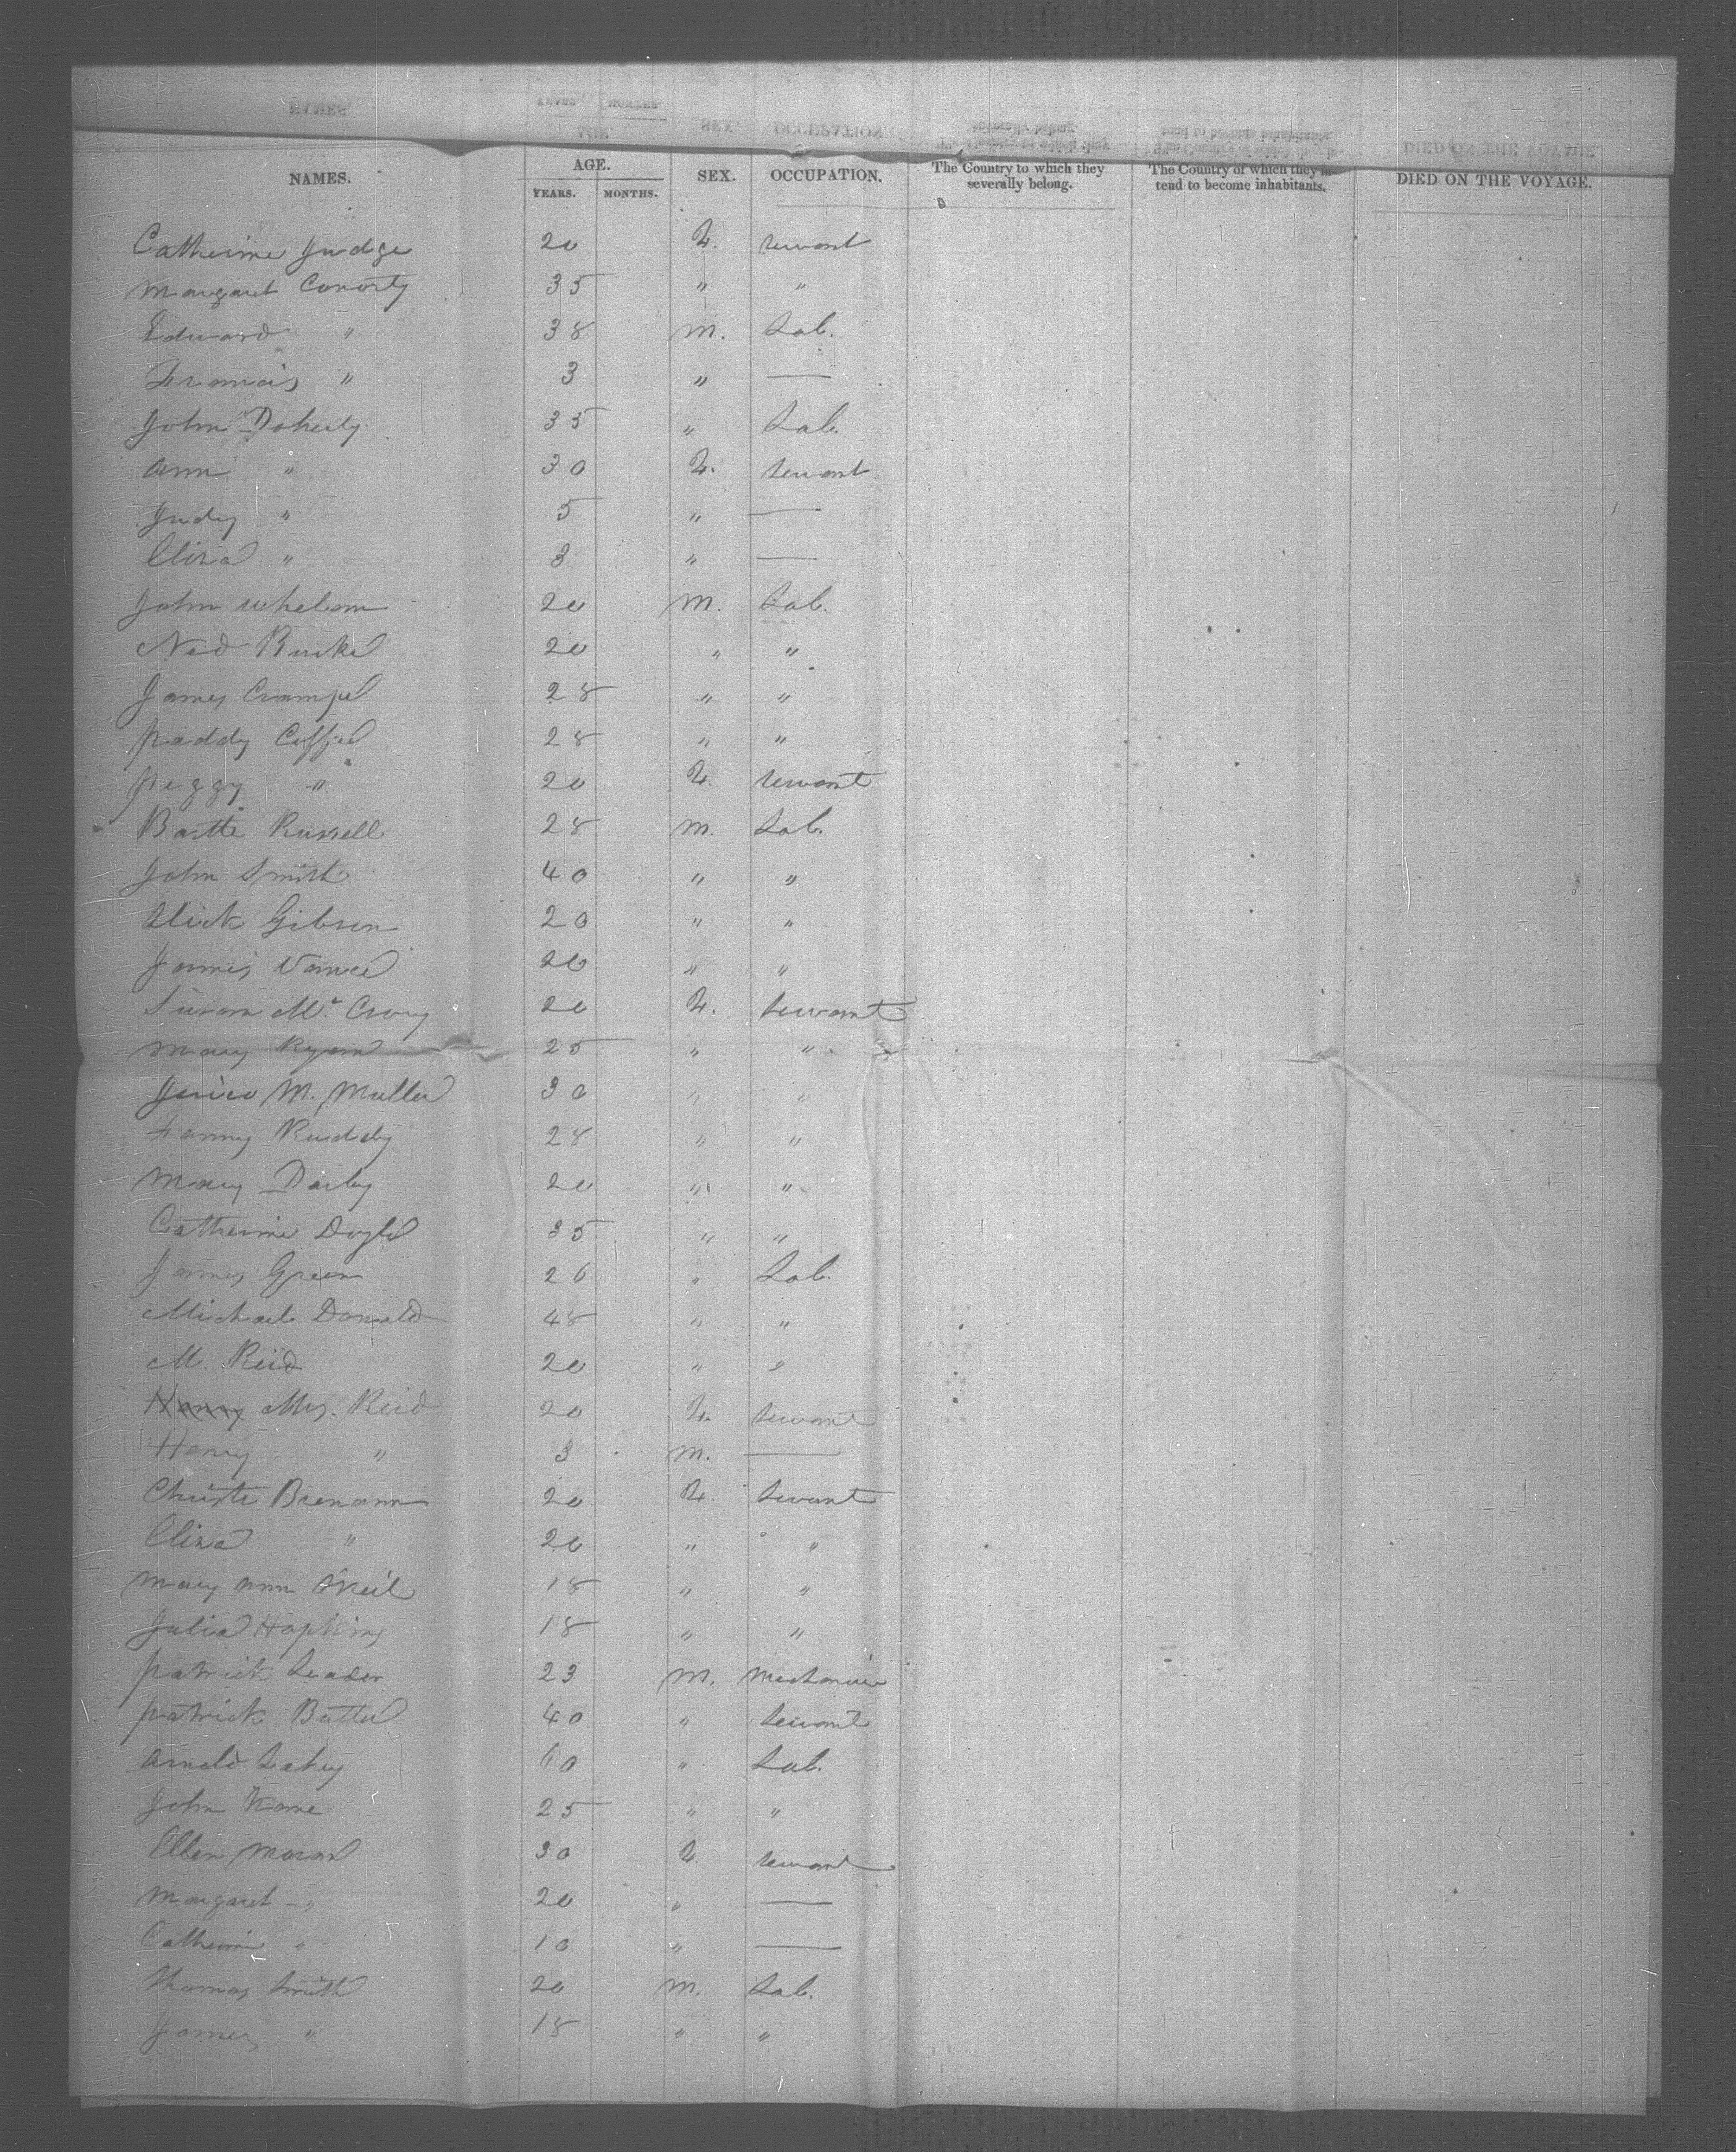 NAMES. AGE. SEX. OCCUPATION. The Country to which they severally belong. The Country of which they in- tend to become inhabitants. DIED ON THE VOYAGE.
YEARS. MONTHS.
Catherine Judge 20 F. servant
Margaret Conorty 35 " "
Edward " 38 M. Lab.
Francis " 3 " —
John Doherty 35 " Lab.
Ann " 30 F. servant
Judy " 5 " —
Eliza " 3 " —
John Whelan 20 M. Lab.
Ned Burke 20 " "
James 28 " "
Paddy Coffee 28 " "
Peggy " 20 F. servant
Bartte Russell 28 M. Lab.
John Smith 40 " "
Ulick Gibson 20 " "
James Vance 20 " "
Susan Mc Crory 20 F. servant
Mary Ryan 25 " "
M. Muller 30 " "
Fanny Ruddy 28 " "
Mary Darby 20 " "
Catherine Doyle 35 " "
James Green 26 " Lab.
Michael Donald 48 " "
M. Reid 20 " "
Henry Mrs. Reid 20 F. servant
Henry " 3 M. —
Christe Brenann 20 F. servant
Eliza " 20 " "
Mary Ann O'Neil 18 " "
Julia Hopkins 18 " "
Patrick Leader 23 M. Mechanic
Patrick Butler 40 " servant
Arnold Lahey 60 " Lab.
John Kane 25 " "
Ellen Moran 30 F. servant
Margaret — " 20 " —
Catherine " 10 " —
Thomas Smith 20 M. Lab.
James " 18 " "